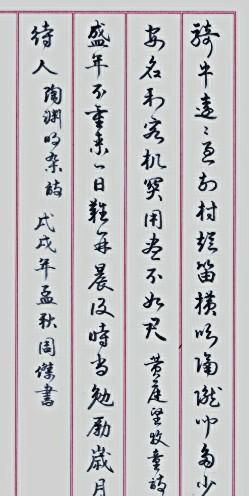 骑牛遠〻过前村短笛横吹隔隴闻多少
安名利客机関用尽不如君 黄庭坚牧童詩
盛年不重来一日難再晨及時当勉励歲月
待人 陶渊明杂詩 戊戌年孟秋周傑書